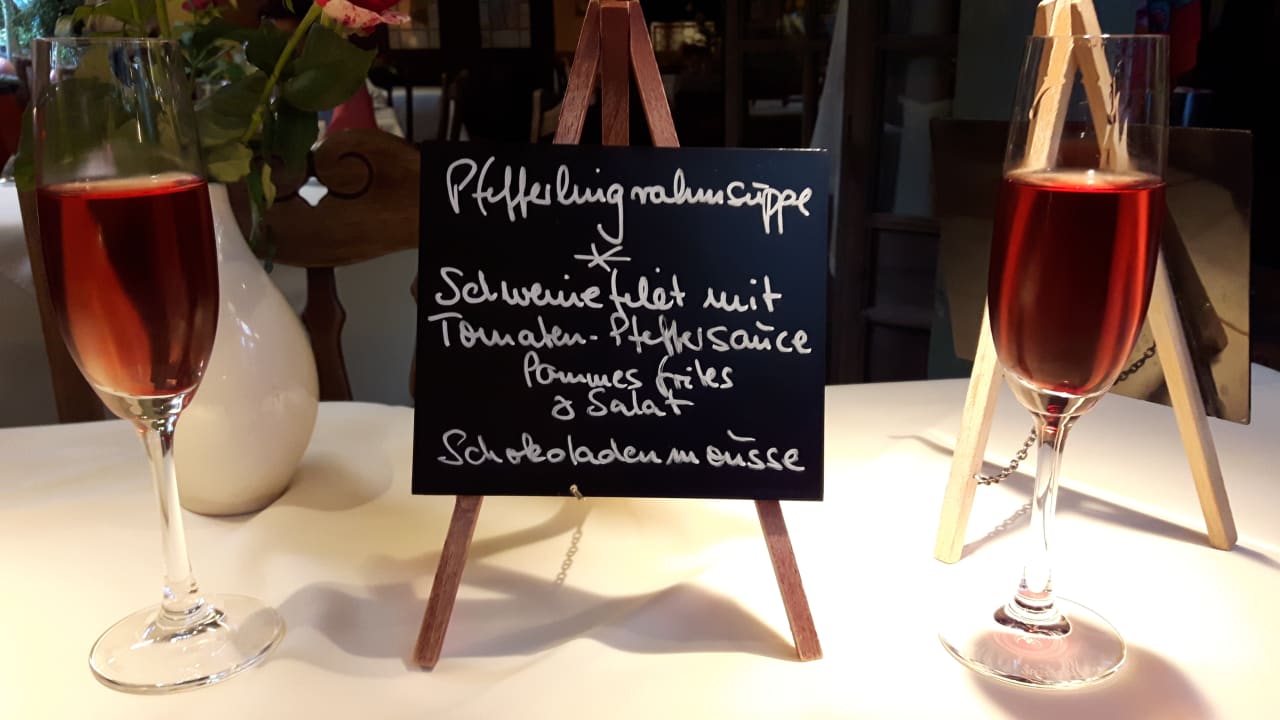 Pfefferlingrahmsuppe
*
Schweinefilet mit
Tomaten-Pfeffersauce
Pommes frites
& Salat
Schokoladenmousse